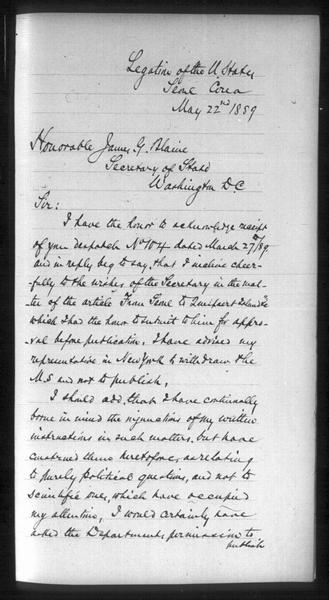 Legation of the U. States
Seoul Corea
May 22nd 1889
Honorable James G. Blaine
Secretary of State
Washington DC
Sir:
I have the honor to acknowledge receipt
of your despatch No 104 dated March 27th/89.
and in reply beg to say, that I incline cheer-
fully to the wishes of the Secretary in the mat-
ter of the article From Seoul to Quelpart Island &c
which I had the honor to submit to him for appro-
val before publication, I have advised my
representative in New York to withdraw the
M.S and not to publish,
I should add, that I have continually
borne in mind the injunctions of my written
instructions in such matters, but have
construed them heretofore, as relating
to purely Political questions, and not to
scientific ones, which have occupied
my attention, I would certainly have
asked the Departments permission to
publish